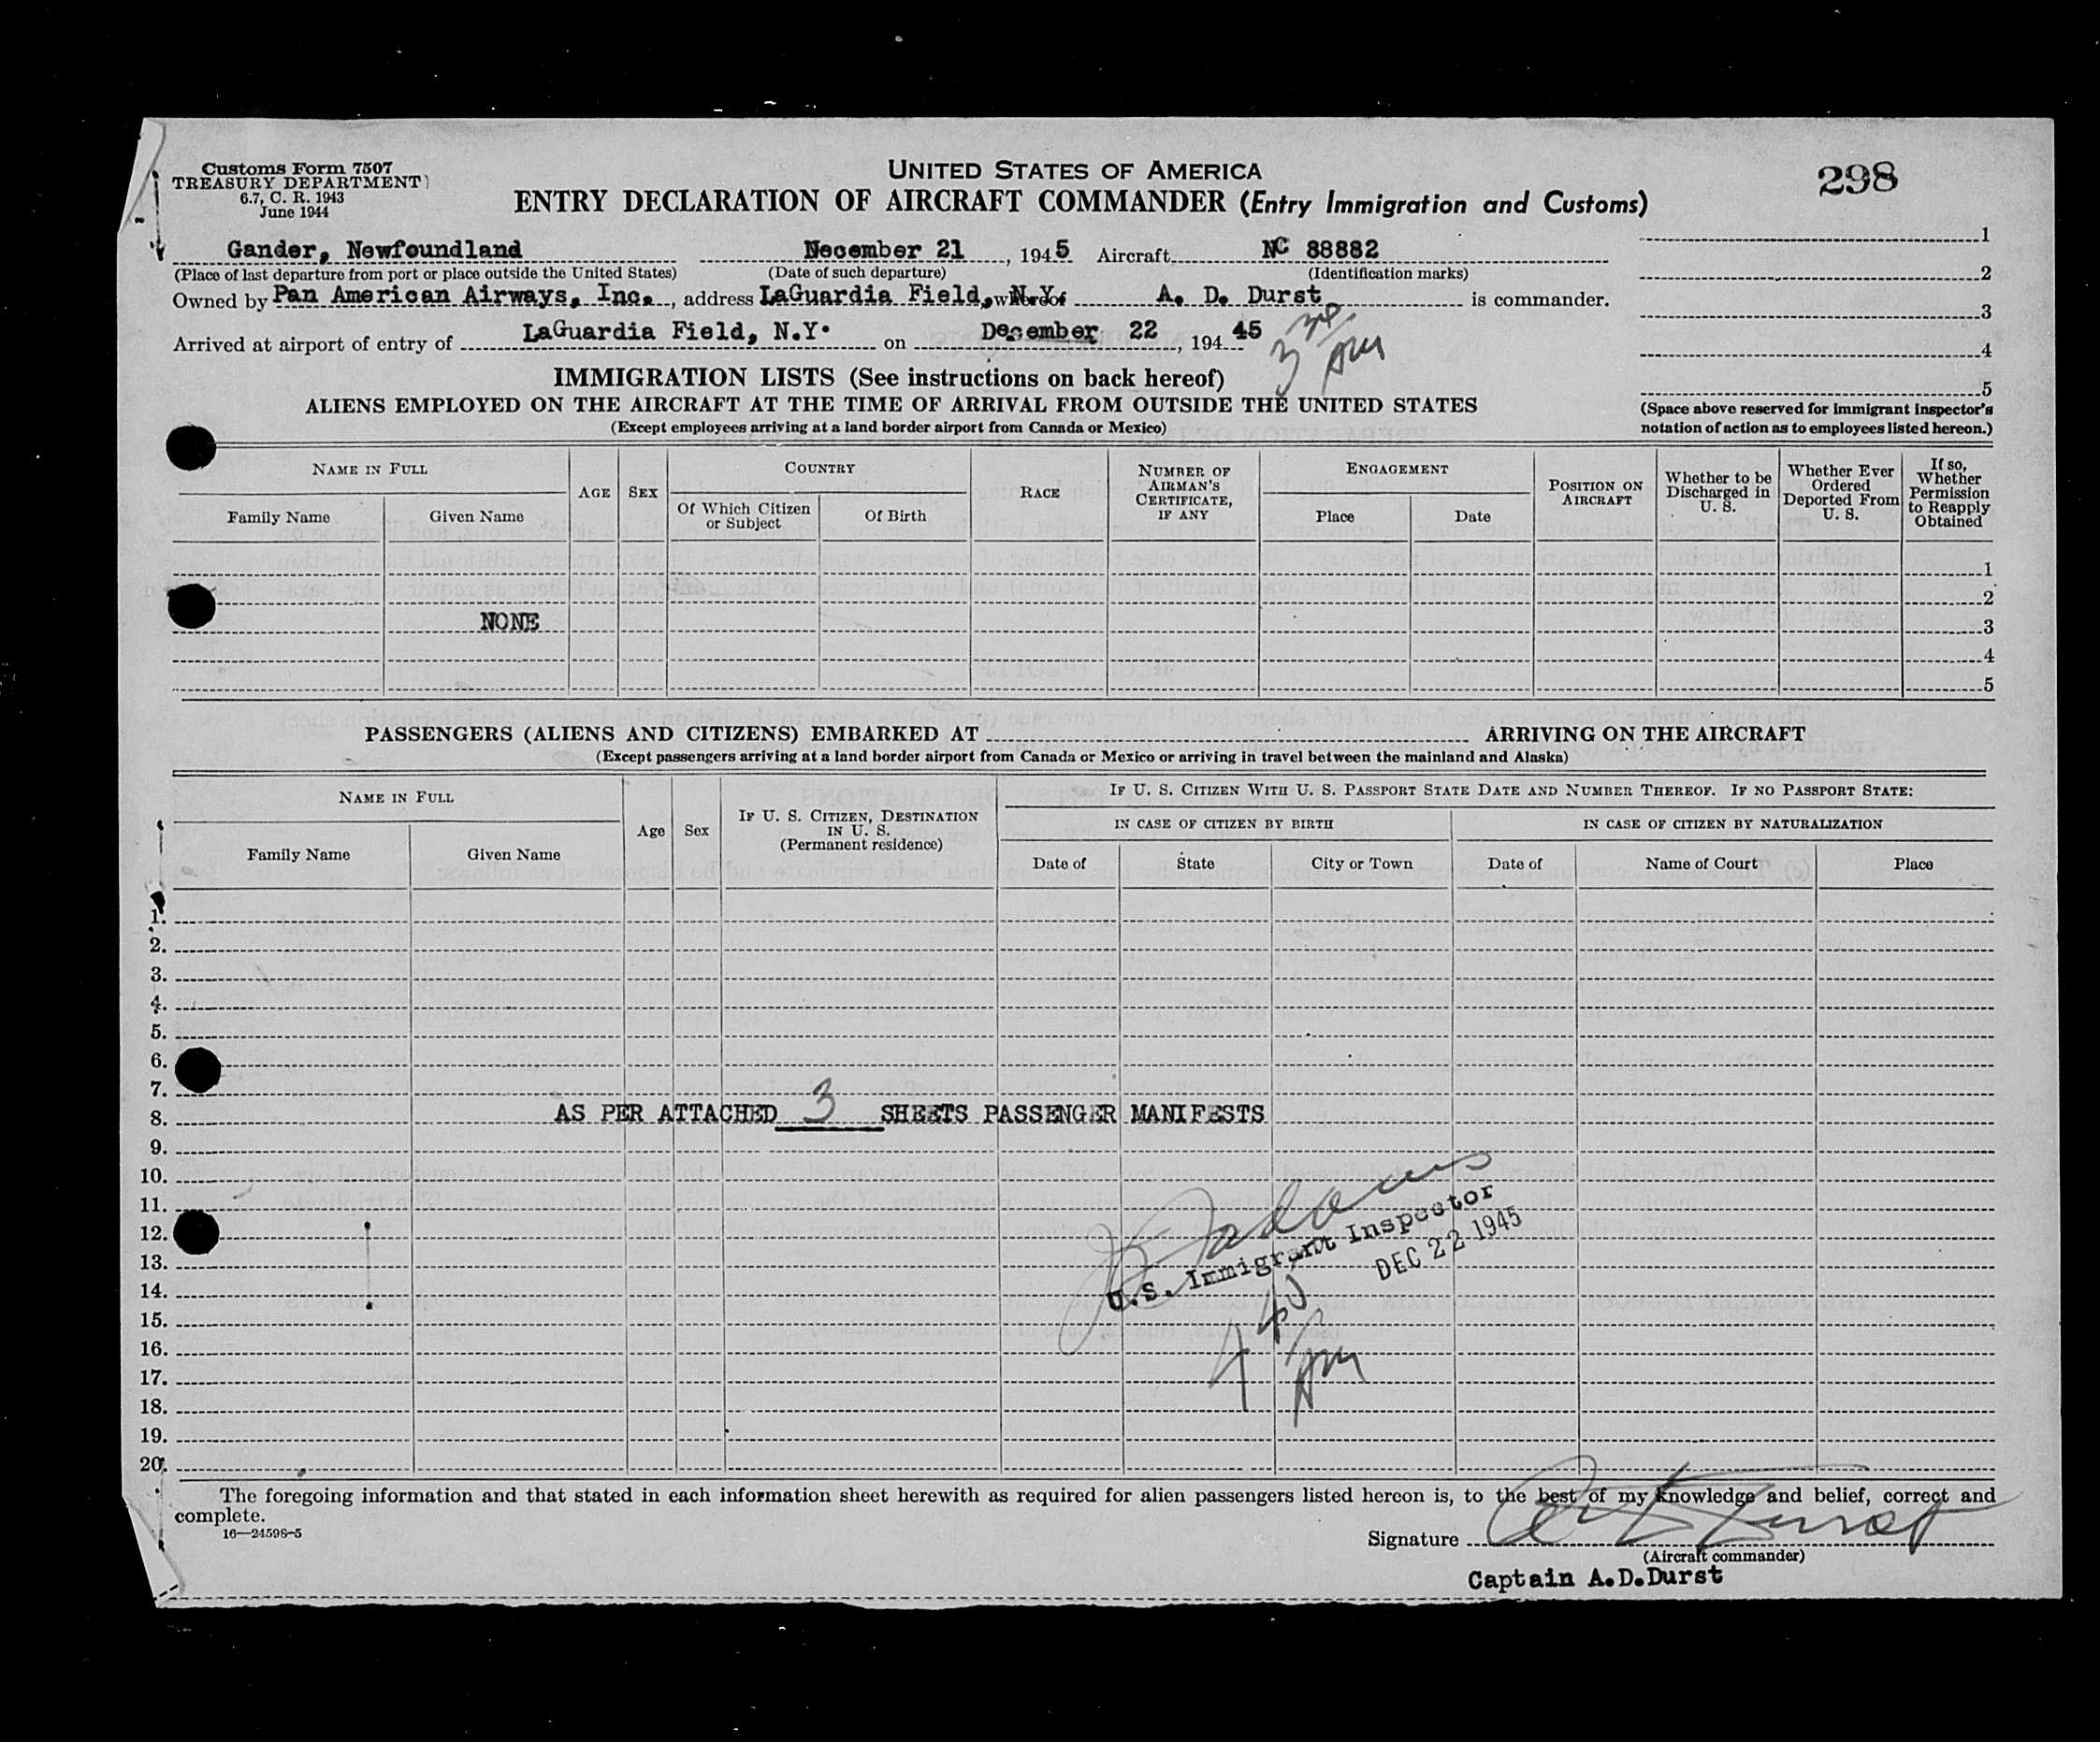 Customs Form 7507
TREASURY DEPARTMENT
6.7, C. R. 1943
June 1944
UNITED STATES OF AMERICA
ENTRY DECLARATION OF AIRCRAFT COMMANDER (Entry Immigration and Customs)
298
Gander, Newfoundland Necember 21, 1945 Aircraft NC 88882
(Place of last departure from port or place outside the United States) (Date of such departure) (Identification marks)
Owned by Pan American Airways, Inc., address LaGuardia Field, N.Y. whereof A. D. Durst is commander.
Arrived at airport of entry of LaGuardia Field, N.Y. on December 22, 194 45
AM
1
2
3
4
5
(Space above reserved for immigrant inspector's
notation of action as to employees listed hereon.)
IMMIGRATION LISTS (See instructions on back hereof)
ALIENS EMPLOYED ON THE AIRCRAFT AT THE TIME OF ARRIVAL FROM OUTSIDE THE UNITED STATES
(Except employees arriving at a land border airport from Canada or Mexico)
NAME IN FULL
Family Name Given Name
AGE SEX
COUNTRY
Of Which Citizen or Subject Of Birth
RACE
NUMBER OF AIRMAN'S CERTIFICATE, IF ANY
ENGAGEMENT
Place Date
POSITION ON AIRCRAFT
Whether to be Discharged in U. S.
Whether Ever Ordered Deported From U. S.
If so, Whether Permission to Reapply Obtained
1
2
NONE 3
4
5
PASSENGERS (ALIENS AND CITIZENS) EMBARKED AT ARRIVING ON THE AIRCRAFT
(Except passengers arriving at a land border airport from Canada or Mexico or arriving in travel between the mainland and Alaska)
NAME IN FULL
Family Name Given Name
Age Sex
IF U. S. CITIZEN, DESTINATION IN U. S. (Permanent residence)
IF U. S. CITIZEN WITH U. S. PASSPORT STATE DATE AND NUMBER THEREOF. IF NO PASSPORT STATE:
IN CASE OF CITIZEN BY BIRTH IN CASE OF CITIZEN BY NATURALIZATION
Date of State City or Town Date of Name of Court Place
1.
2.
3.
4.
5.
6.
7.
8. AS PER ATTACHED 3 SHEETS PASSENGER MANIFESTS
9.
10.
11.
12.
13.
14.
15.
16.
17.
18.
19.
20.
U.S. Immigrant Inspector
DEC 22 1945
4 40 AM
The foregoing information and that stated in each information sheet herewith as required for alien passengers listed hereon is, to the best of my knowledge and belief, correct and
complete.
16—24598-5
Signature
(Aircraft commander)
Captain A.D.Durst